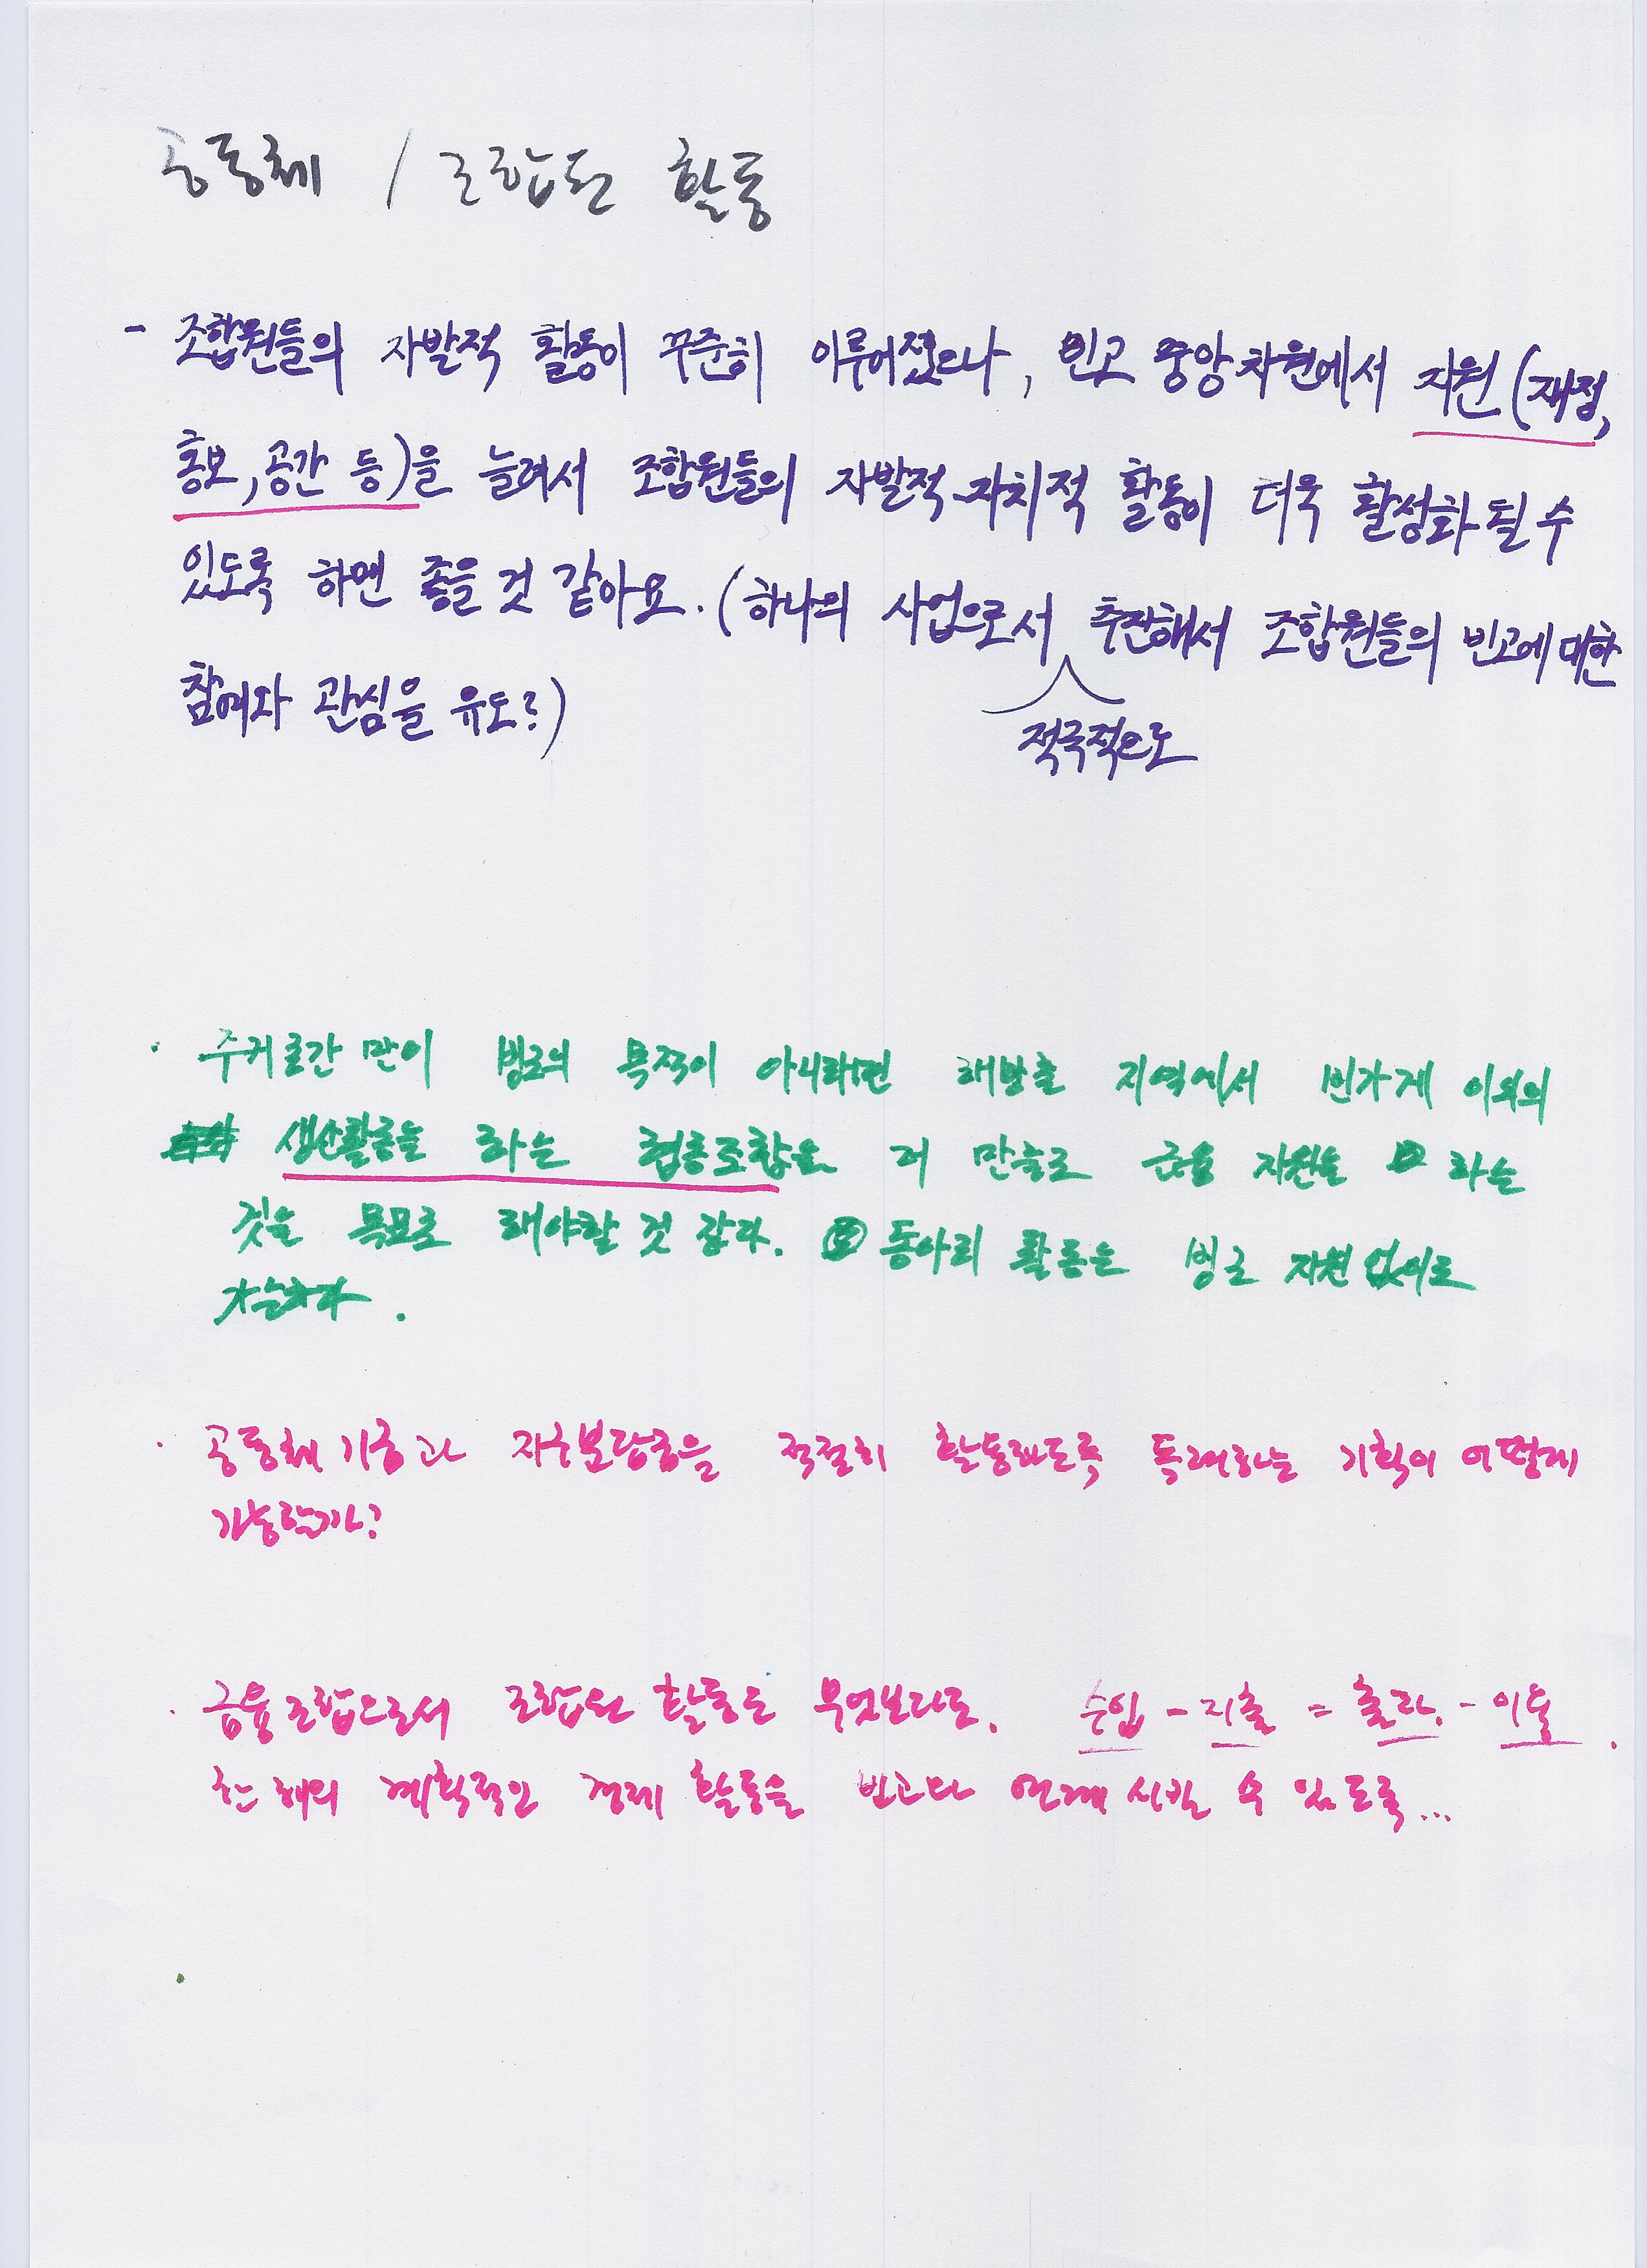 공동체 / 조합원 활동
- 조합원들의 자발적 활동이 꾸준히 이루어졌으나, 빈고 중앙차원에서 지원(재정,
홍보, 공간 등)을 늘려서 조합원들의 자발적·자치적 활동이 더욱 활성화 될 수
있도록 하면 좋을 것 같아요. (하나의 사업으로서 추진해서 조합원들의 빈고에 대한
적극적으로
참여와 관심을 유도?)
· 주거공간 만이 빙고의 목적이 아니라면 해방촌 지역에서 빈가게 이외의
생산활동을 하는 협동조합을 더 만들고 금융 지원을 하는
것을 목표로 해야할 것 같다. 동아리 활동은 빙고 지원 없이도
가능하다.
· 공동체 기금과 지구분담금을 적절히 활동하도록 독려하는 기획이 어떻게
가능할까?
· 금융조합으로서 조합원 활동은 무엇보다도. 수입 - 지출 = 출자. - 이용.
한 해의 계획적인 경제 활동을 빈고와 연계 시킬 수 있도록...